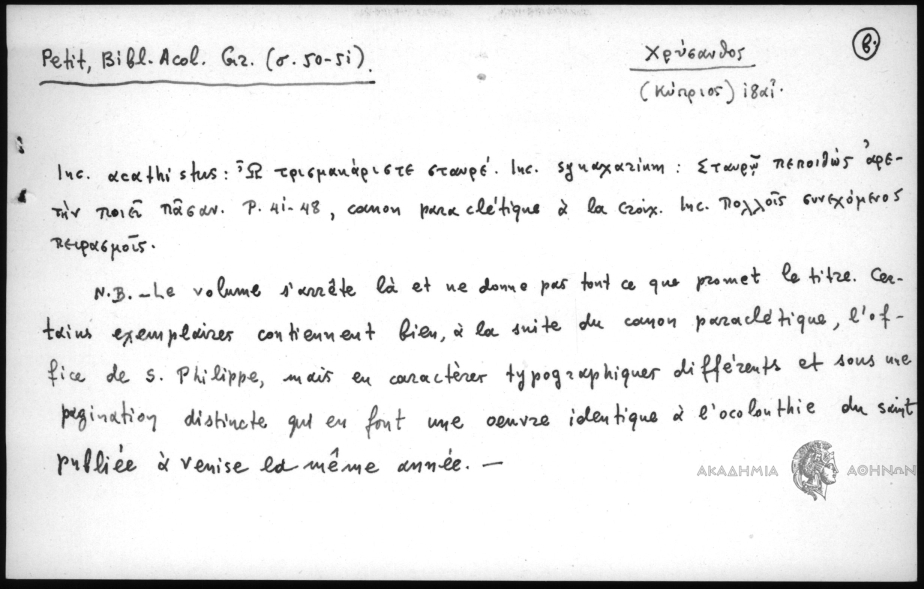 Petit, Bibl. Acol. Gr. (σ. 50-51).
Χρύσανθος
(Κύπριος) ιθαί.
β.
Inc. acathistus: Ὦ τρισμακάριστε σταυρέ. Inc. synaxarium: Σταυρῷ πεποιθὼς ἀρε-
τὴν ποιεῖ πᾶσαν. P. 41-48, canon paraclétique à la croix. Inc. Πολλοῖς συνεχόμενος
πειρασμοῖς.
N.B. - Le volume s'arrête là et ne donne pas tout ce que promet le titre. Cer-
tains exemplaires contiennent bien, à la suite du canon paraclétique, l'of-
fice de S. Philippe, mais en caractères typographiques différents et sous une
pagination distincte qui en font une oeuvre identique à l'acolouthie du saint
publiée à Venise la même année. —
ΑΚΑΔΗΜΙΑ ΑΘΗΝΩΝ